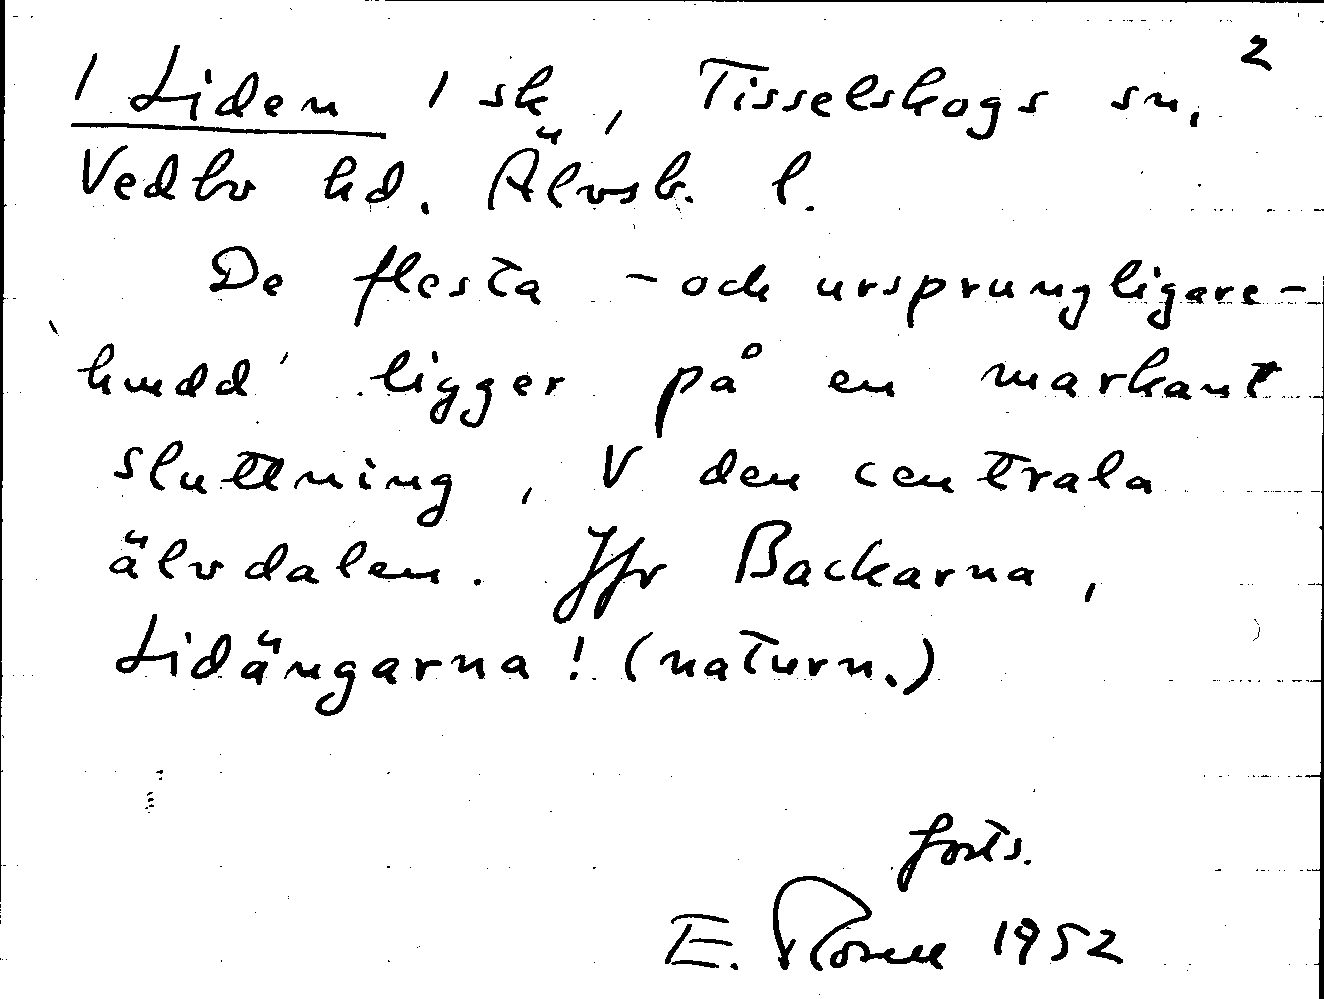 2
1 Liden 1 sk, Tisselskogs sn,
Vedbo hd. Älvsb. l.
De flesta - och ursprungligare -
ligger på en markant
sluttning, V den centrala
älvdalen. Jfr Backarna,
Lidängarna! (naturn.)
forts.
E. 1952